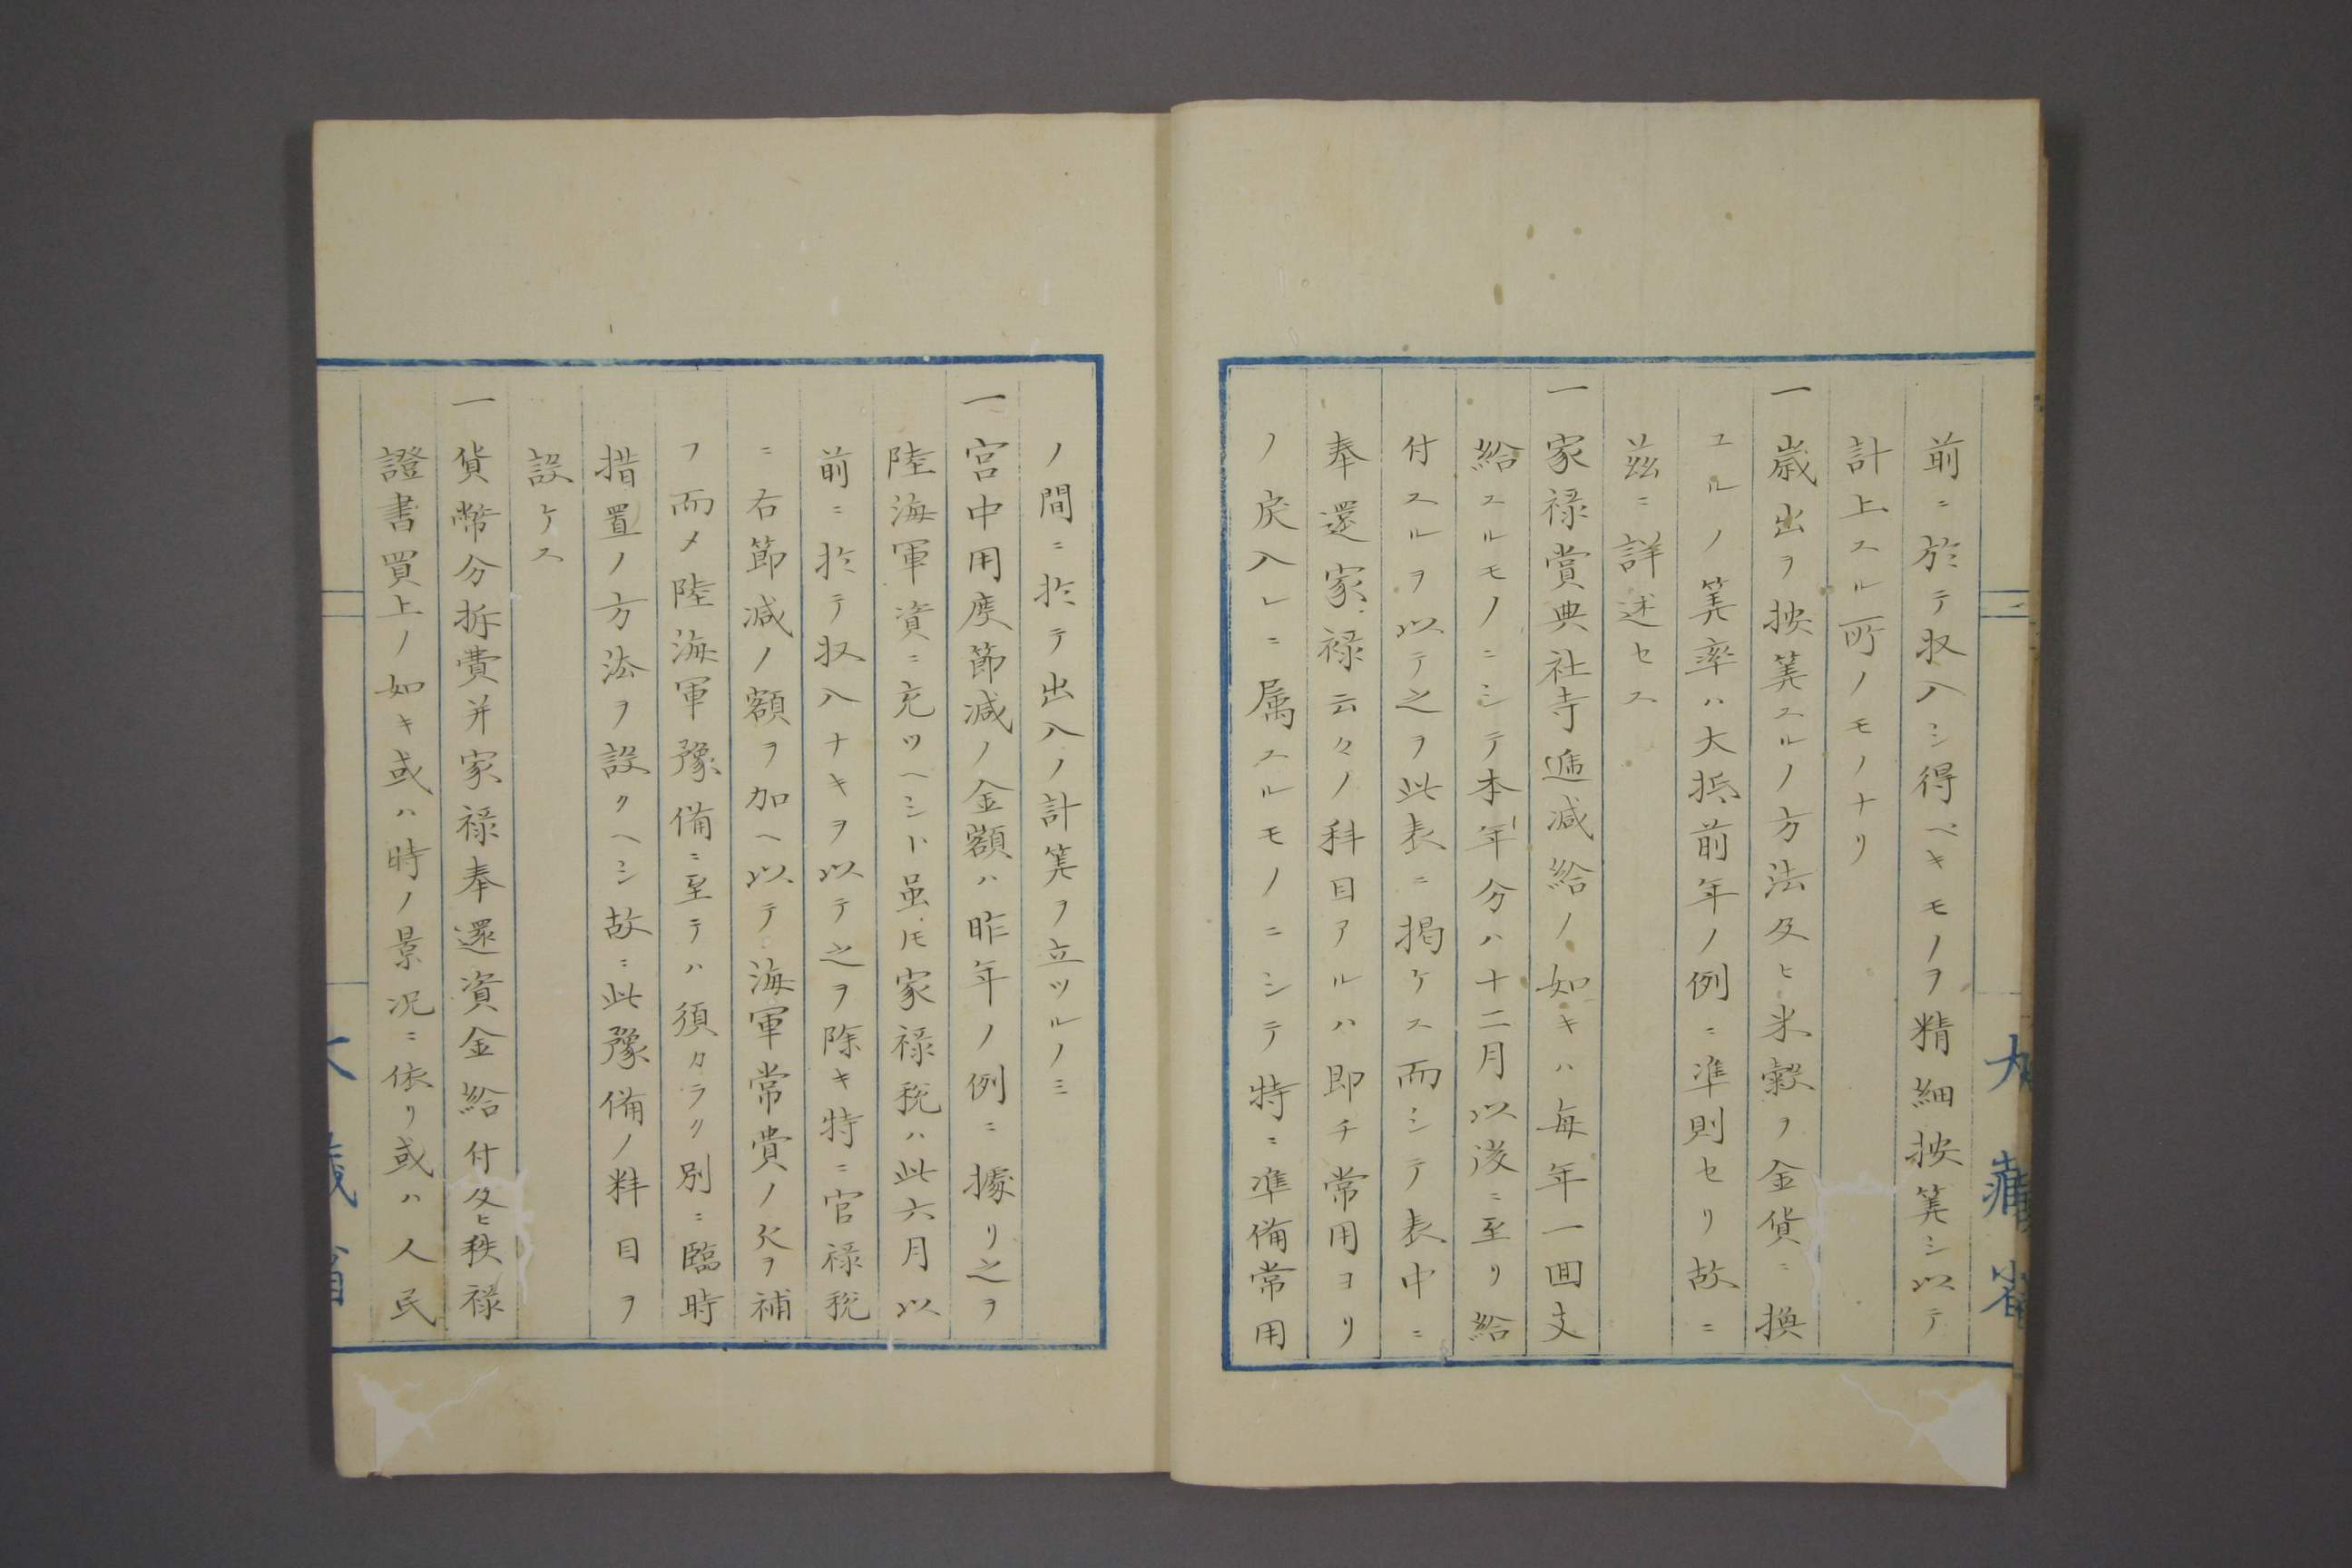 前ニ於テ収入シ得ヘキモノヲ精細按筭シ以テ
計上スル所ノモノナリ
一歳出ヲ按筭スルノ方法及ヒ米穀ヲ金貨ニ換
ユルノ筭率ハ大抵前年ノ例ニ準則セリ故ニ
茲ニ詳述セス
一家禄賞典社寺逓減給ノ如キハ毎年一囬支
給スルモノニシテ本年分ハ十二月以後ニ至リ給
付スルヲ以テ之ヲ此表ニ掲ケス而シテ表中ニ
奉還家禄云々ノ科目アルハ即チ常用ヨリ
ノ戻入レニ属スルモノニシテ特ニ準備常用
大蔵省
ノ間ニ於テ出入ノ計筭ヲ立ツルノミ
一宮中用度節減ノ金額ハ昨年ノ例ニ據リ之ヲ
陸海軍資ニ充ツヘシト虽𪜈家禄税ハ此六月以
前ニ於テ収入ナキヲ以テ之ヲ除キ特ニ官禄税
ニ右節減ノ額ヲ加ヘ以テ海軍常費ノ欠ヲ補
フ而メ陸海軍豫備ニ至テハ須カラク別ニ臨時
措置ノ方法ヲ設クヘシ故ニ此豫備ノ科目ヲ
設ケス
一貨幣分拆費并家禄奉還資金給付及ヒ秩禄
證書買上ノ如キ或ハ時ノ景况ニ依リ或ハ人民
大蔵省